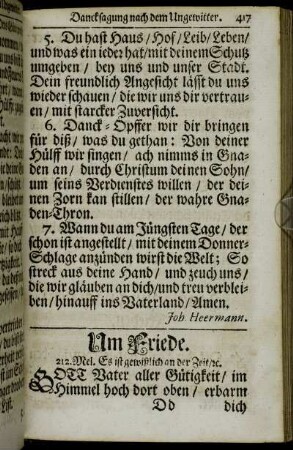 Dancksagung nach dem Ungewitter. 417
5. Du hast Haus/ Hof/ Leib/ Leben/
und was ein ieder hat/ mit deinem Schutz
umgeben/ bey uns und unser Stadt.
Dein freundlich Angesicht lässt du uns
wieder schauen/ die wir uns dir vertrau-
en/ mit starcker Zuversicht.
6. Danck-Opffer wir dir bringen
für diß/ was du gethan: Von deiner
Hülff wir singen/ ach nimms in Gna-
den an/ durch Christum deinen Sohn/
um seins Verdienstes willen/ der dei-
nen Zorn kan stillen/ der wahre Gna-
den-Thron.
7. Wann du am Jüngsten Tage/ der
schon ist angestellt/ mit deinem Donner-
Schlage anzünden wirst die Welt; So
streck aus deine Hand/ und zeuch uns/
die wir gläuben an dich/ und treu verblei-
ben/ hinauff ins Vaterland/ Amen.
Joh. Heermann.
Um Friede.
212. Mel. Es ist gewißlich an der Zeit/ ꝛc.
GOTT Vater aller Gütigkeit/ im
Himmel hoch dort oben/ erbarm
Dd dich